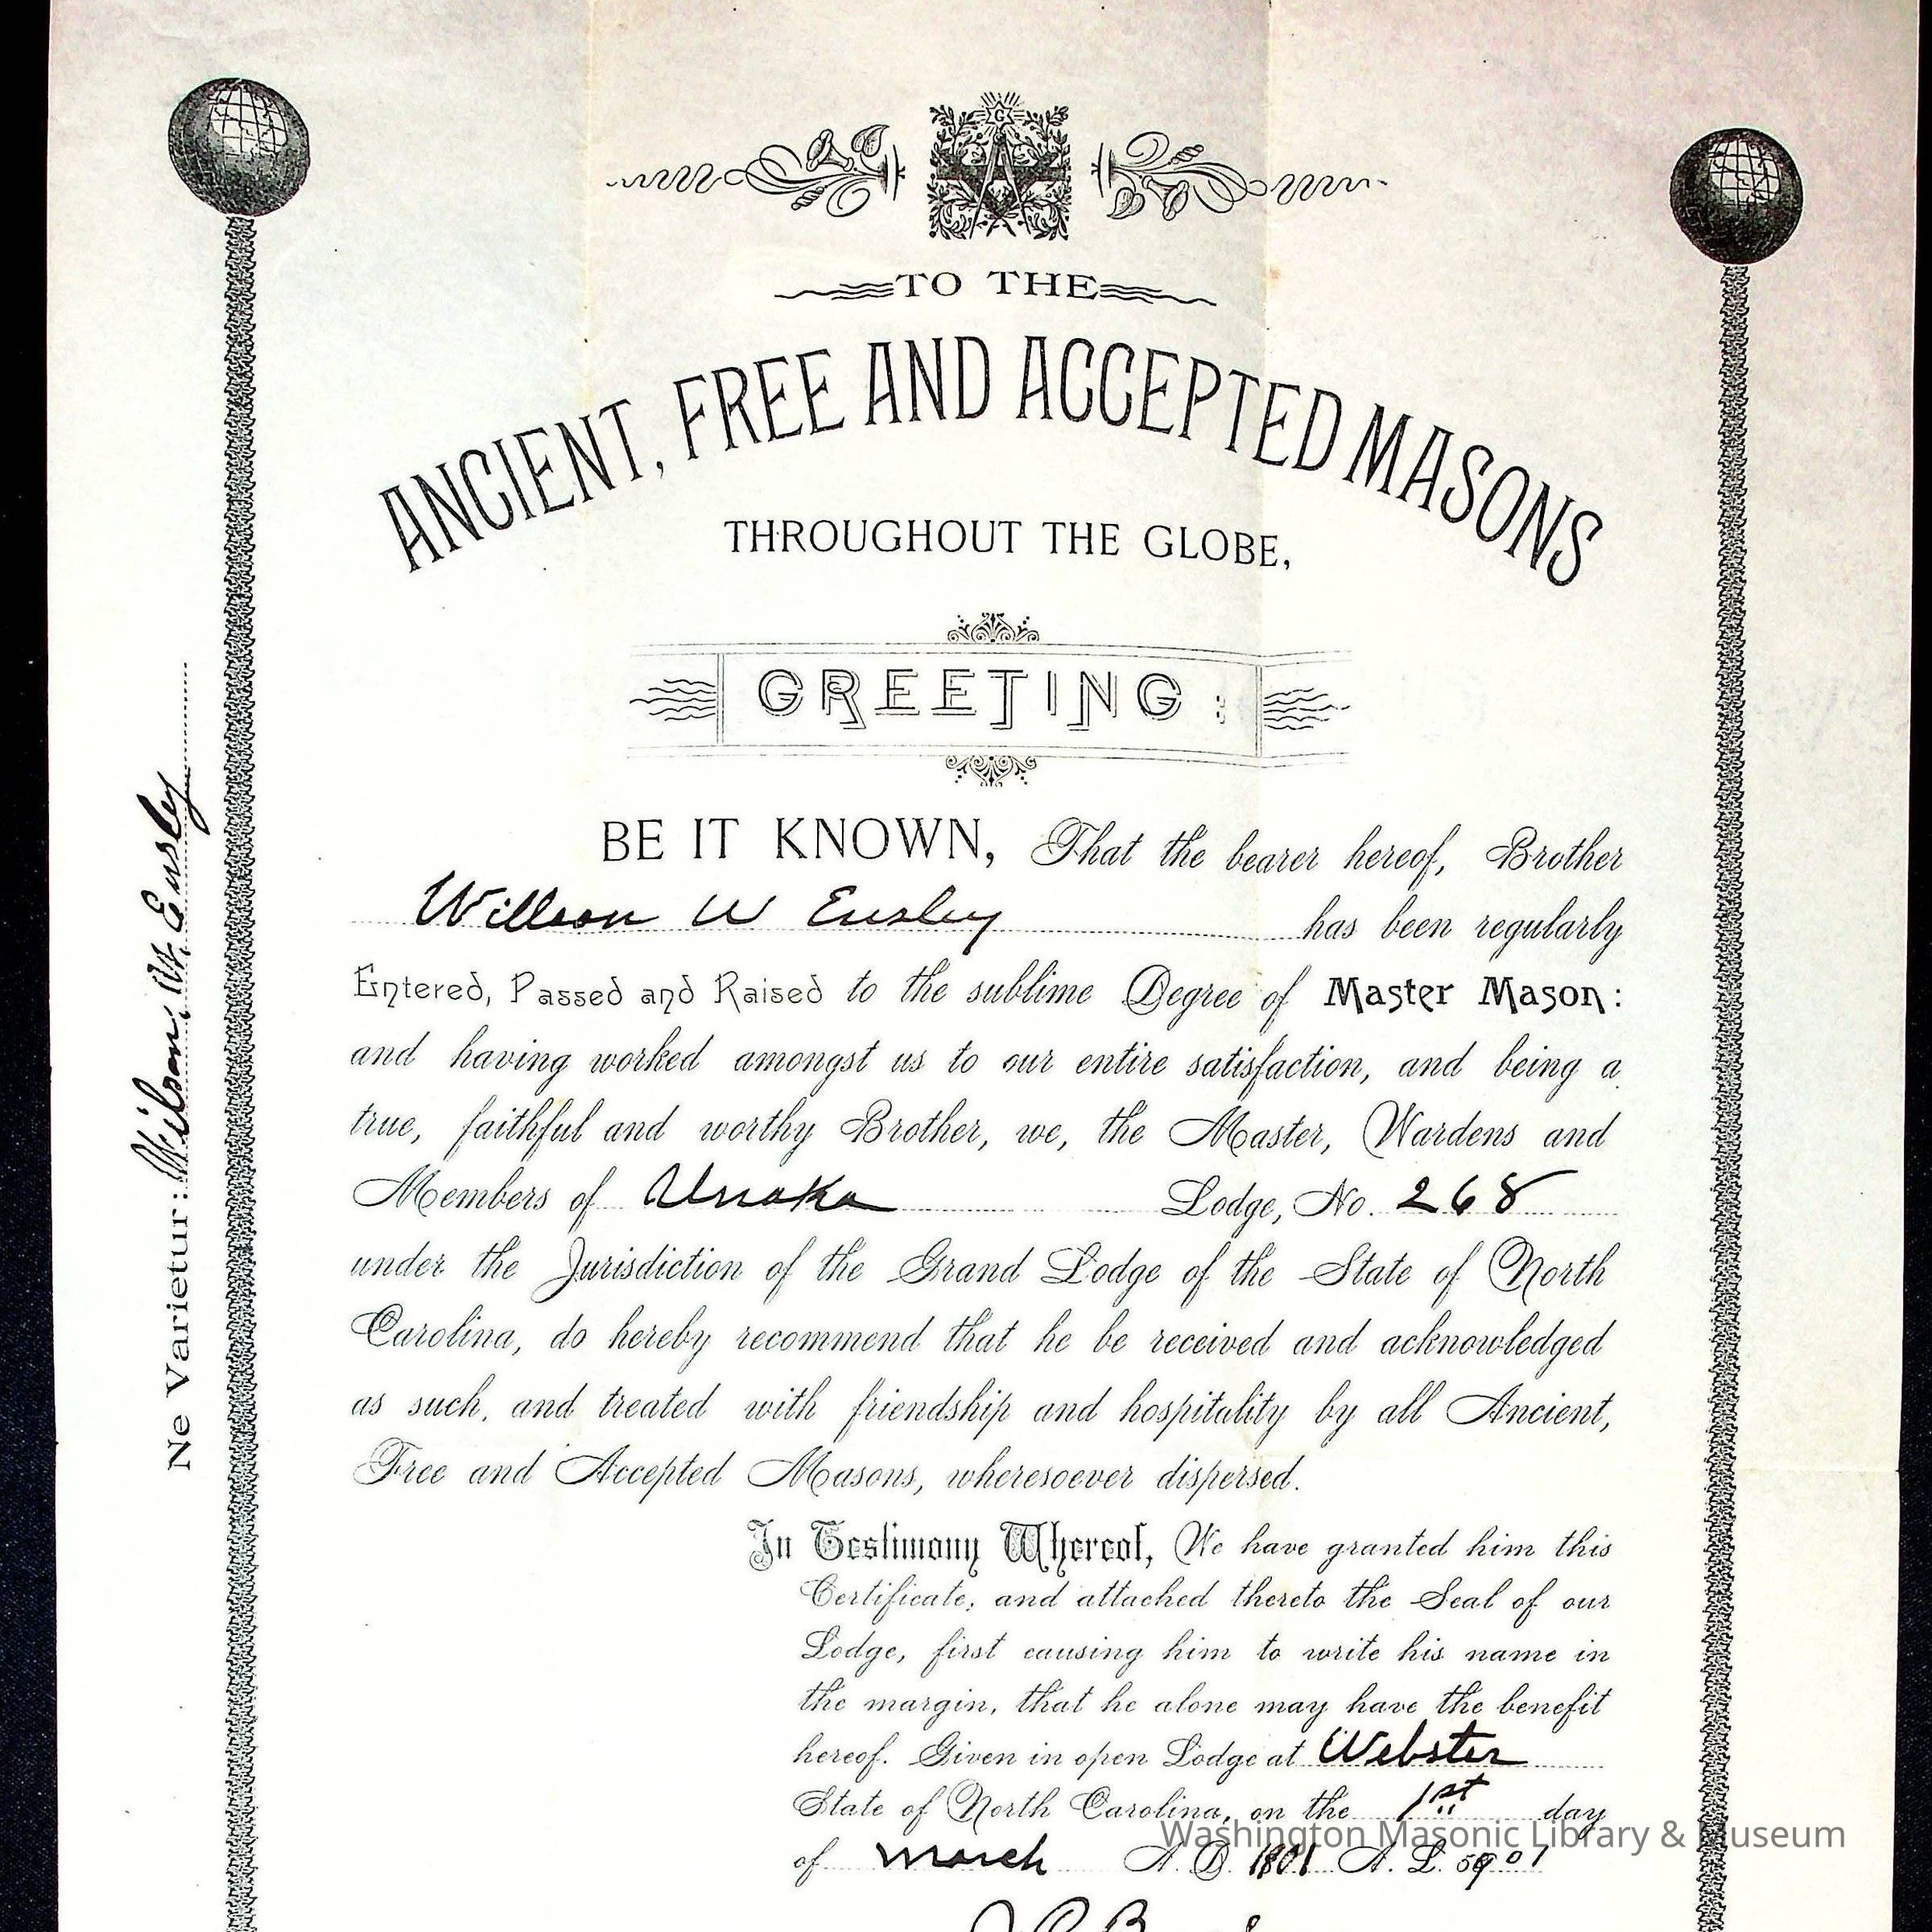 G
TO THE
ANCIENT, FREE AND ACCEPTED MASONS
THROUGHOUT THE GLOBE,
GREETING:
BE IT KNOWN, That the bearer hereof, Brother
Willson W Ensley has been regularly
Entered, Passed and Raised to the sublime Degree of Master Mason:
and having worked amongst us to our entire satisfaction, and being a
true, faithful and worthy Brother, we, the Master, Wardens and
Members of Unaka Lodge, No. 268
under the Jurisdiction of the Grand Lodge of the State of North
Carolina, do hereby recommend that he be received and acknowledged
as such, and treated with friendship and hospitality by all Ancient,
Free and Accepted Masons, wheresoever dispersed.
In Testimony Whereof, We have granted him this
Certificate, and attached thereto the Seal of our
Lodge, first causing him to write his name in
the margin, that he alone may have the benefit
hereof. Given in open Lodge at Webster
State of North Carolina, on the 1st day
of March A. D. A. L. 5901
Ne Varietur: Wilson W. Ensley
Washington Masonic Library & Museum